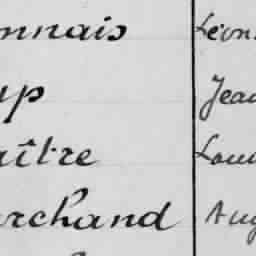 onnais Léon
up Jean
aître Loui
archand Aug